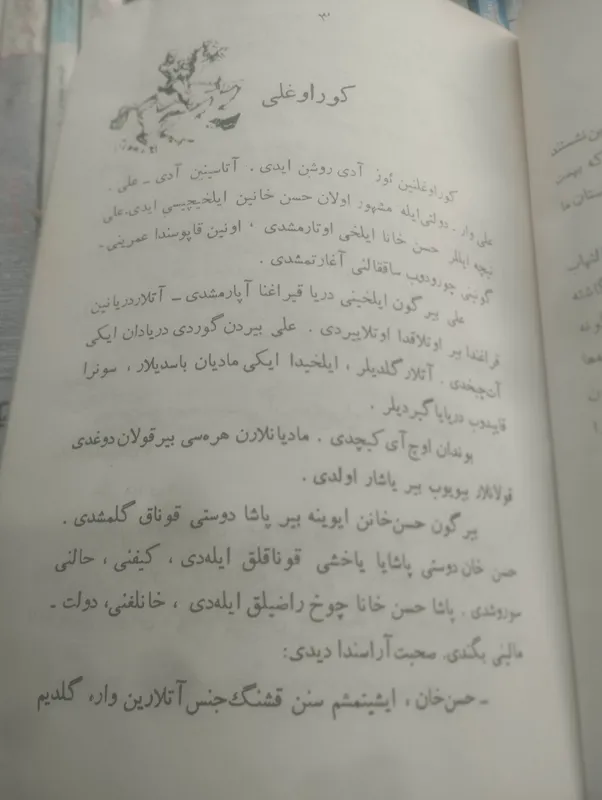 ۳
کوراوغلی
کوراوغلنین ئوز آدی روشن ایدی . آتاسینین آدی ـ علی .
علی وار ـ دولتی‌ایله مشهور اولان حسن خانین ایلخیچیسی ایدی.علی
نیچه ایللر حسن خانا ایلخی اوتارمشدی ، اونین قاپوسندا عمرینی ـ
گونینی چورودوب ساققالنی آغارتمشدی .
علی بیر گون ایلخینی دریا قیراغنا آپارمشدی ـ آتلاردریانین
قراغندا بیر اوتلاقدا اوتلاییردی . علی بیردن گوردی دریادان ایکی
آت‌چخدی . آتلار گلدیلر ، ایلخیدا ایکی مادیان باسدیلار ، سونرا
قاییدوب دریایا گیردیلر .
بوندان اوچ آی کیچدی . مادیانلارن هره‌سی بیرقولان دوغدی
قولانلار بیویوب بیر یاشار اولدی .
بیر گون حسن‌خانن ایوینه بیر پاشا دوستی قوناق گلمشدی .
حسن خان دوستی پاشایا یاخشی قوناقلق ایله‌دی ، کیفنی ، حالنی
سوروشدی . پاشا حسن خانا چوخ راضیلق ایله‌دی ، خانلغنی، دولت ـ
مالینی بگندی. صحبت آراسندا دیدی:
ـ حسن‌خان ، ایشیتمشم سنن قشنگ‌جنس آتلارین وار، گلدیم
ن‌نشستند
که بهمن
ستان ما
التهاب